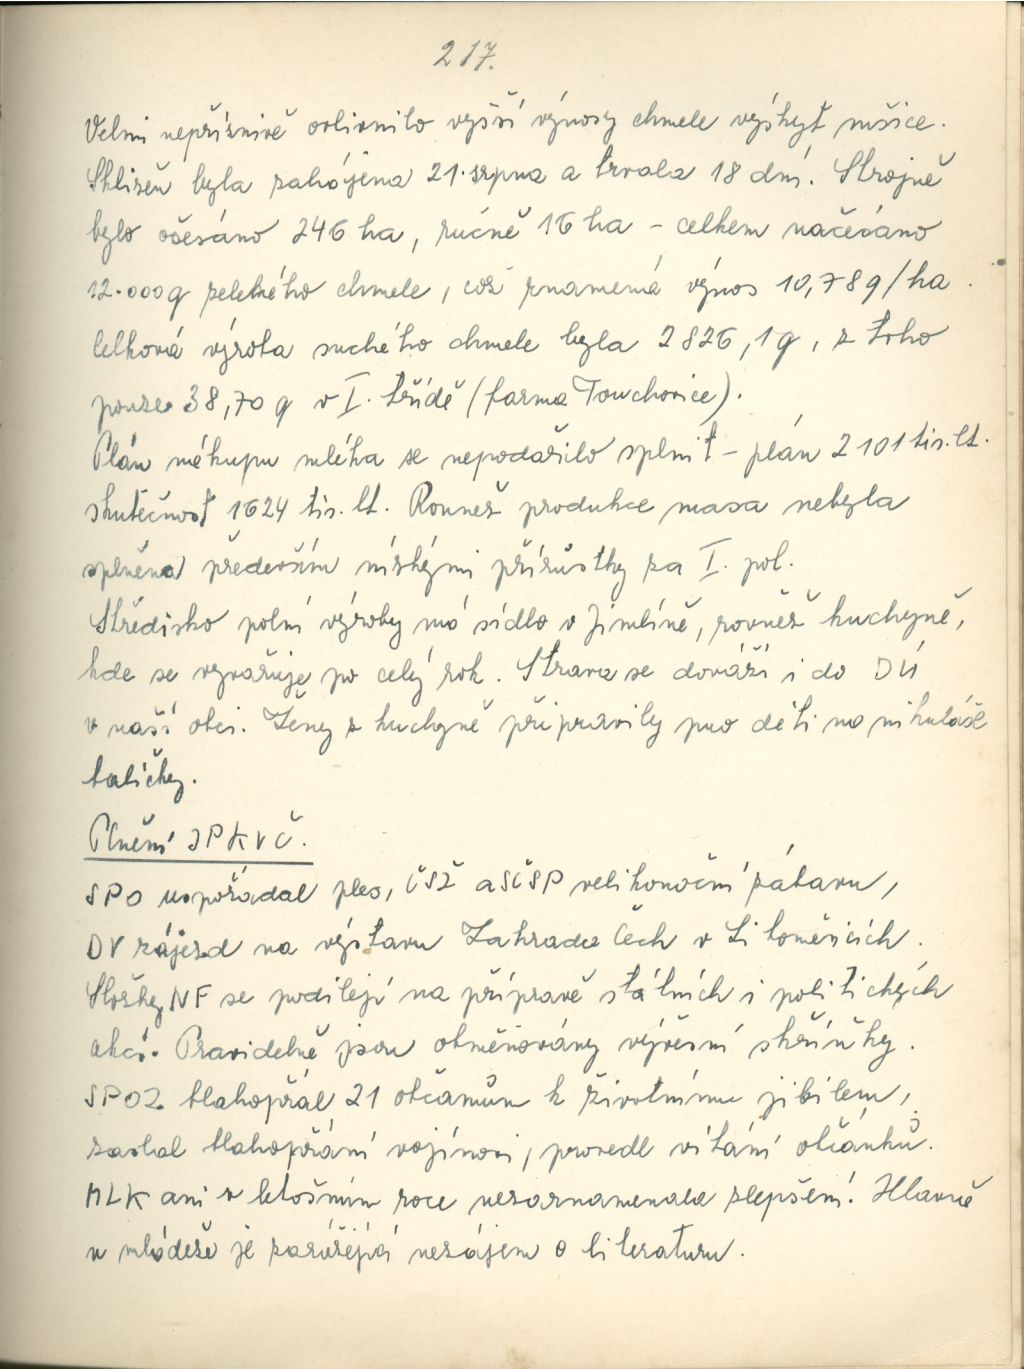 217.
Velmi nepříznivě ovlivnilo vyšší výnosy chmele výskyt mšice.
Sklizeň byla zahájena 21. srpna a trvala 18 dní. Strojně
bylo očesáno 246 ha, ručně 16 ha – celkem načesáno
12.000 q zeleného chmele, což znamená výnos 10,78 q/ha.
Celková výroba suchého chmele byla 2826,1 q, z toho
pouze 38,70 q v I. třídě (farma Touchovice).
Plán nákupu mléka se nepodařilo splnit – plán 2101 tis. lt.
skutečnost 1624 tis. lt. Rovněž produkce masa nebyla
splněna především nízkými přírůstky za I. pol.
Středisko polní výroby má sídlo v Jimlíně, rovněž kuchyně,
kde se vyvařuje po celý rok. Strava se dováží i do DÚ
v naší obci. Ženy z kuchyně připravily pro děti na mikuláše
balíčky.
Plnění JPKVČ.
SPO uspořádal ples, ČSŽ a SČSP velikonoční zábavu,
DV zájezd na výstavu Zahrada Čech v Litoměřicích.
Složky NF se podílejí na přípravě státních i politických
akcí. Pravidelně jsou obměňovány vývěsní skříňky.
SPOZ blahopřál 21 občanům k životnímu jubileu,
zaslal blahopřání vojínovi, provedl vítání občánků.
MLK ani v letošním roce nezaznamenala zlepšení. Hlavně
u mládeže je zarážející nezájem o literaturu.